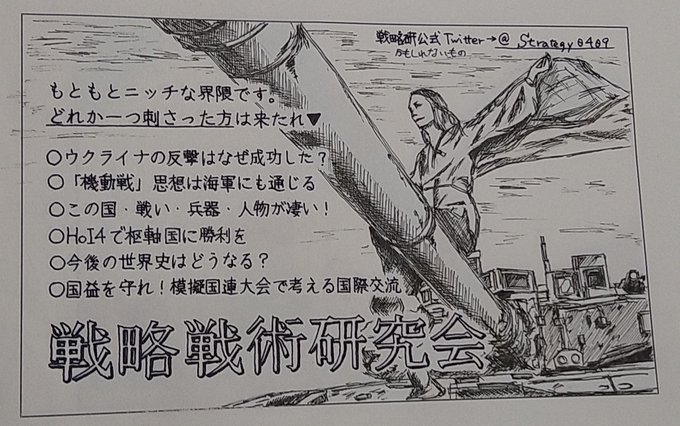 戦略研公式Twitter→@Strategy0409
もともとニッチな界隈です。
どれか一つ刺さった方は来たれ▼
○ウクライナの反撃はなぜ成功した？
○「機動戦」思想は海軍にも通じる
○この国・戦い・兵器・人物が凄い！
○HoI4で枢軸国に勝利を
○今後の世界史はどうなる？
○国益を守れ！模擬国連大会で考える国際交流
戦略戦術研究会